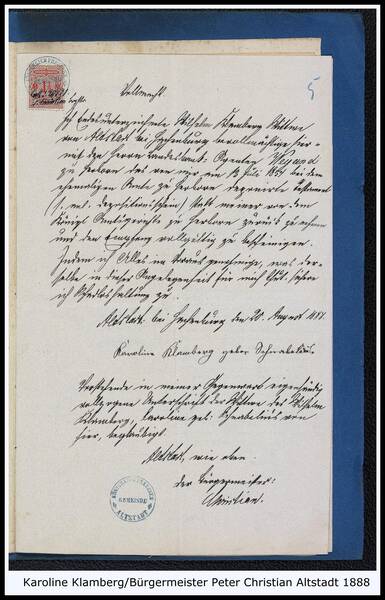 5
Vollmacht.
Ich Endesunterzeichnete Wilhelm Klamberg Wittwe
von Altstadt bei Hachenburg bevollmächtige hier-
mit den Herrn Agenten Weyand
zu Herborn das von mir am Juli 1854 bei dem
ehemaligen Amte zu Herborn deponirte Testament
statt meiner von dem
Königl. Amtsgerichte zu Herborn zurück zu nehmen
und den Empfang vollgültig zu bescheinigen.
Indem ich Alles im Voraus genehmige, was der-
selbe in dieser Angelegenheit für mich thut,
ich Schadloshaltung zu.
Altstadt bei Hachenburg den 20. August 1888.
Karoline Klamberg geborne Schnabelius.
Vorstehende in meiner Gegenwart eigenhändig
vollzogene Unterschrift der Wittwe des Wilhelm
Klamberg, Caroline geb. Schnabelius von
hier, beglaubigt.
Altstadt, wie oben.
der Bürgermeister:
Christian.
GEMEINDE
ALTSTADT
Karoline Klamberg/Bürgermeister Peter Christian Altstadt 1888